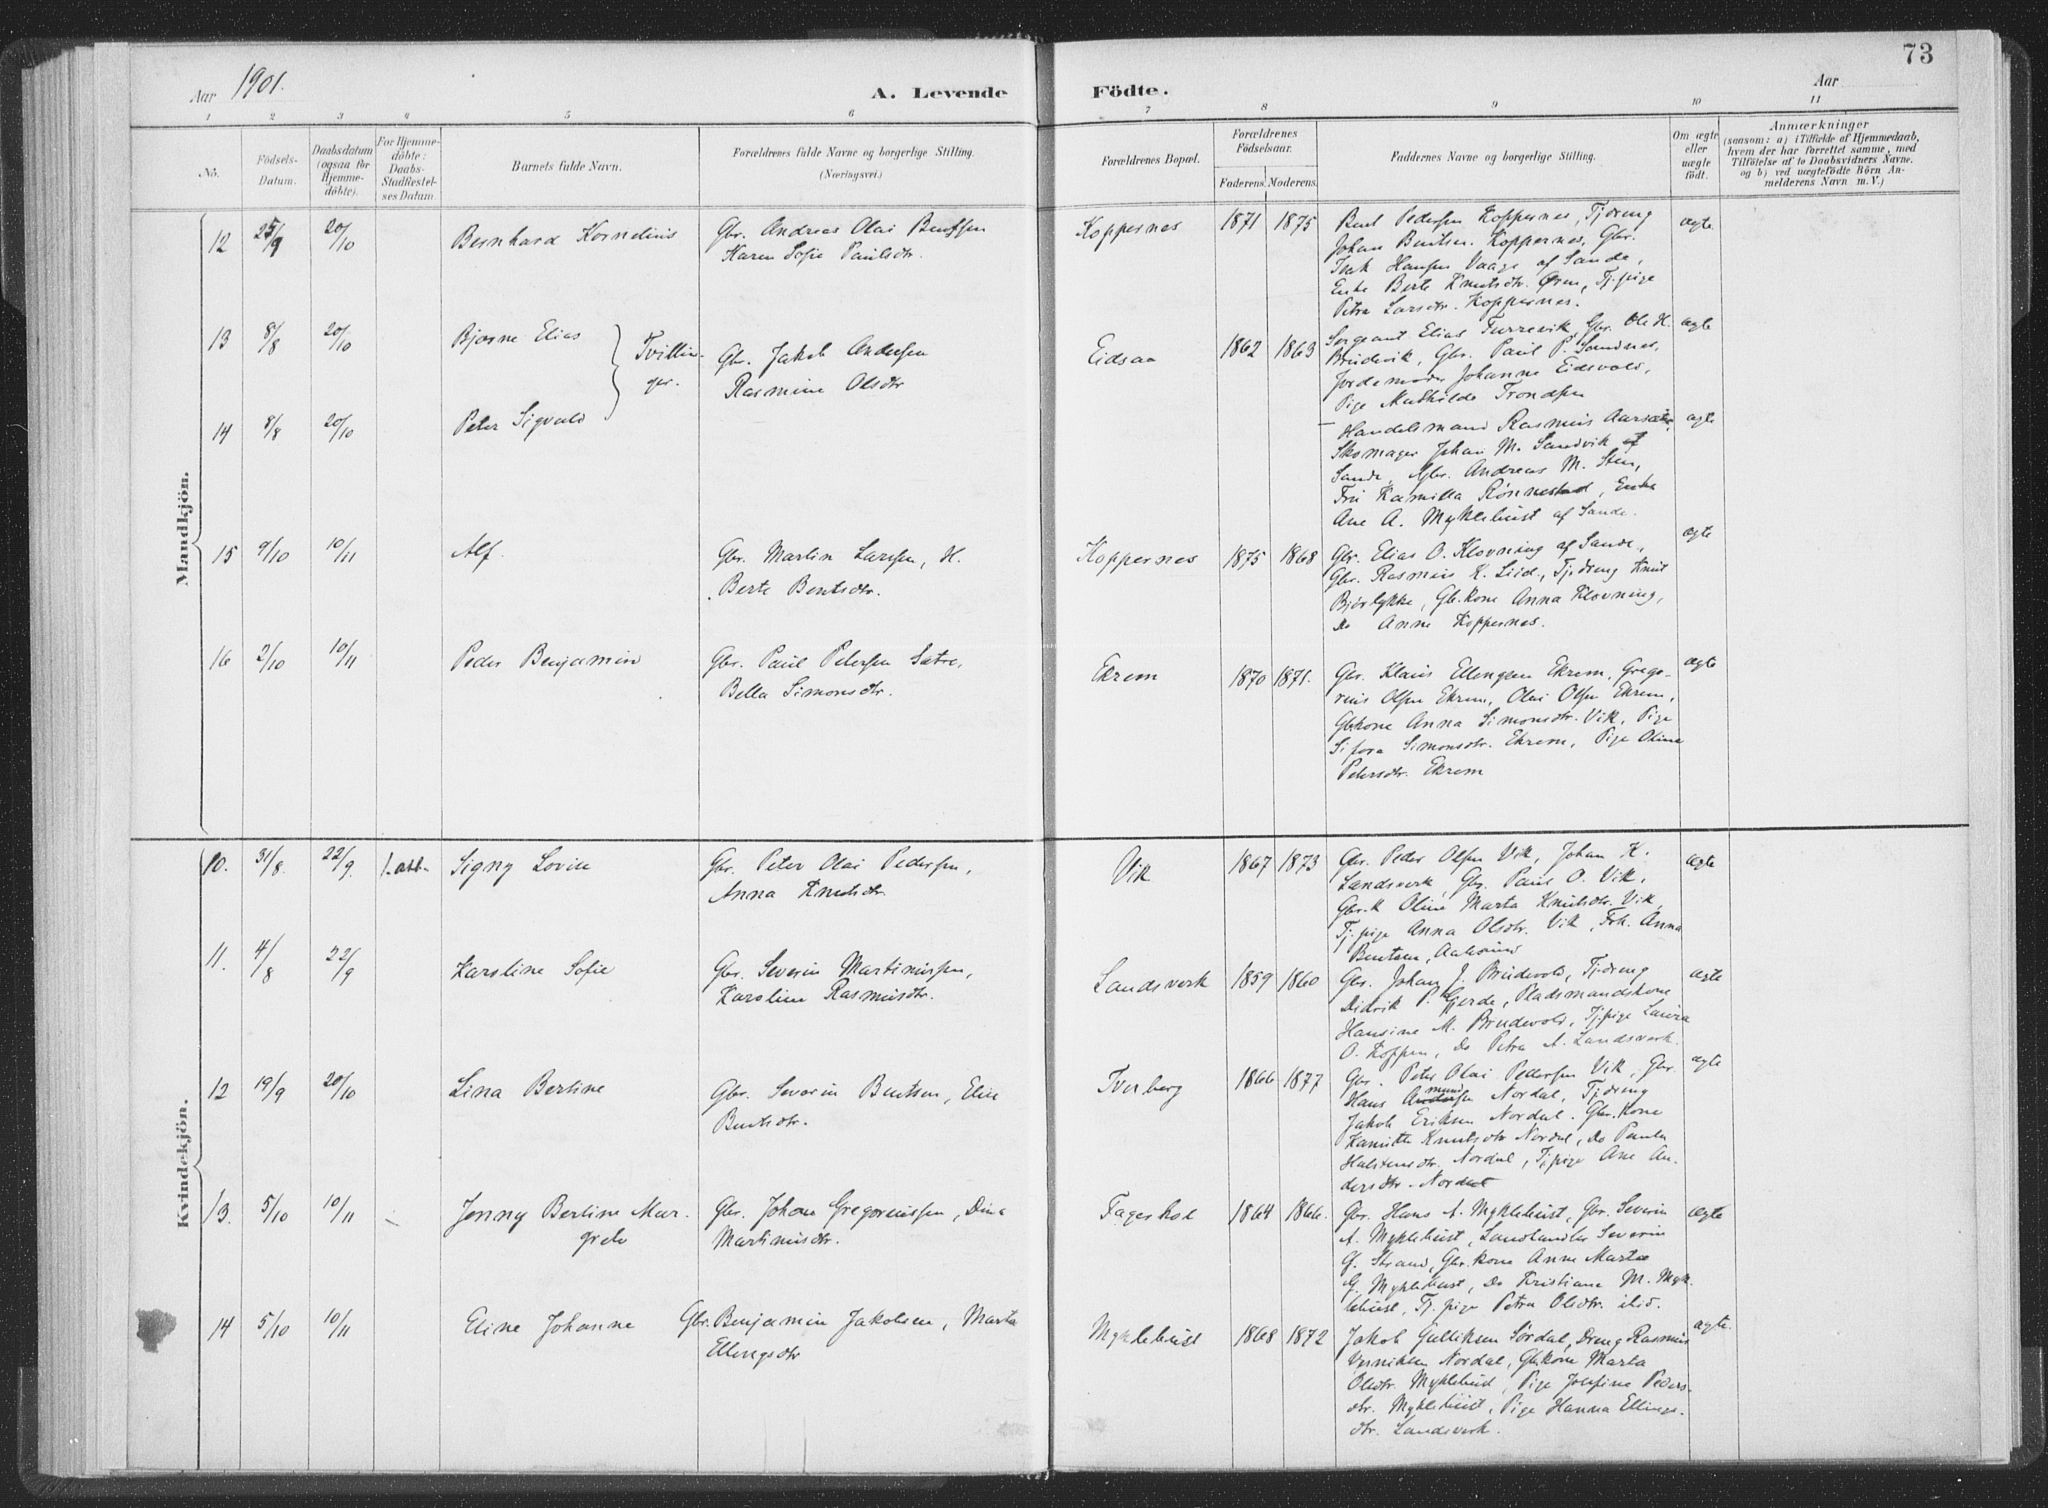 73
Aar 1901.
A. Levende Födte.
Aar
1 2 3 4 5 6 7 8 9 10 11
No.
Födsels-Datum.
Daabsdatum (ogsaa for Hjemmedöbte).
For Hjemmedöbte: Daabs-Stadfæstelses Datum
Barnets fulde Navn.
Forældrenes fulde Navne og borgerlige Stilling.
(Næringsvei.)
Forældrenes Bopæl.
Forældrenes Födselsaar.
Faderens. Moderens.
Faddernes Navne og borgerlige Stilling.
Om ægte eller uægte født.
Anmærkninger
(saasom: a) i Tilfælde af Hjemmedaab,
hvem der har forrettet samme, med
Tilföielse af to Daabsvidners Navne.
og b) ved uægtefödte Börn An-
melderens Navn m. V.)
Mandkjön.
12 25/9 20/10 Bernhard Kornelius
Gbr. Andreas Olai Bentsen
Karen Sofie Paulsdtr.
Koppernes 1871 1875
Bent Pedersen Koppernes, Tjdreng
Johan Bentsen Koppernes, Gbr.
Hansen Vaage af Sande,
Enke Berte Knutsdtr. Øren, Tj.pige
Petra Larsdtr. Koppernes.
ægte
13 8/8 20/10 Bjarne Elias
Tvillin-
ger.
Gbr. Jakob Andersen
Rasmine Olsdtr
Eidsaa 1862 1863
Sergeant Elias Turrevik, Gbr. Ole H.
Brudevik, Gbr. Paul P. Sandnes,
Jordemoder Johanne Eidsvold,
Pige Mathilde Trondsen
ægte
14 8/8 20/10 Peter Sigvald
Handelsmand Rasmus Aarsæter,
Skomager Johan M. Sandvik af
Sande, Gbr. Andreas M. Sten,
Fru Kamilla Rønnestad, Enke
Ane A. Myklebust af Sande.
ægte
15 9/10 10/11 Alf
Gbr. Martin Larssen, H.
Berte Bentsdtr.
Koppernes 1875 1868
Gbr. Elias O. Klovning af Sande,
Gbr. Rasmus K. Liid, Tjdreng Knut
Bjørlykke, Gb.kone Anna Klovning,
Do Anne Koppernes.
ægte
16 2/10 10/11 Peder Benjamin
Gbr. Paul Petersen Sætre,
Bella Simonsdtr.
Ekrem 1870 1871.
Gbr. Klaus Ellengsen Ekrem, Grego-
rius Olsen Ekrem, Olai Olsen Ekrem,
Gbkone Anna Simonsdtr. Vik, Pige
Sifora Simonsdtr. Ekrem, Pige Oline
Petersdtr. Ekrem
ægte
Kvindekjön.
10. 31/8. 22/9. Signy Lovise
Gbr. Peter Olai Pedersen,
Anna Knutsdtr
Vik 1867 1873
Gbr. Peder Olsen Vik, Johan K.
Landsverk, Gbr. Paul O. Vik,
Gbr.k Oline Marta Knutsdtr. Vik,
Tj.pige Anna Olsdtr. Vik, Frk. Anna
Bentsen, Aalesund
ægte
11. 4/8 22/9 Karoline Sofie
Gbr. Severin Martinussen,
Karoline Rasmusdtr.
Landsverk 1859 1860
Gbr. Johan J. Brudevold, Tjdreng
Didrik P. Gjerde, Pladsmandskone
Hansine M. Brudevold, Tj.pige Laura
O. Koppen, Do Petra A. Landsverk.
ægte
12 19/9 20/10 Lina Bertine
Gbr. Severin Bentsen, Elise
Bentsdtr.
Tverberg 1866 1877
Gbr. Peter Olai Pedersen Vik, Gbr.
Hans Amundsen Nordal, Tjdreng
Jakob Eriksen Nordal. Gbr.kone
Kamilla Knutsdtr Nordal, Do Paula
Halstensdtr. Nordal, Tj.pige Ane An-
dersdtr. Nordal
ægte
13. 5/10 10/11 Jenny Berline Mar-
grete
Gbr. Johan Gregoriussen, Dina
Martinusdtr.
Fagerhol 1864 1866.
Gbr. Hans A. Myklebust, Gbr. Severin
A. Myklebust, Landhandler Severin
G. Strand, Gbr.kone Anne Marta
G. Myklebust, Do Kristiane M. Myk-
lebust, Tj.pige Petra Olsdtr. ibid.
ægte
14 5/10 10/11 Eline Johanne
Gbr. Benjamin Jakobsen, Marta
Ellengsdtr
Myklebust 1868 1872
Jakob Gulliksen Sørdal, Dreng Rasmus
Nordal, Gbkone Marta
Olsdtr. Myklebust, Pige Josefine Peders-
dtr. Myklebust, Pige Hanna Ellings-
dtr. Landsverk.
ægte.